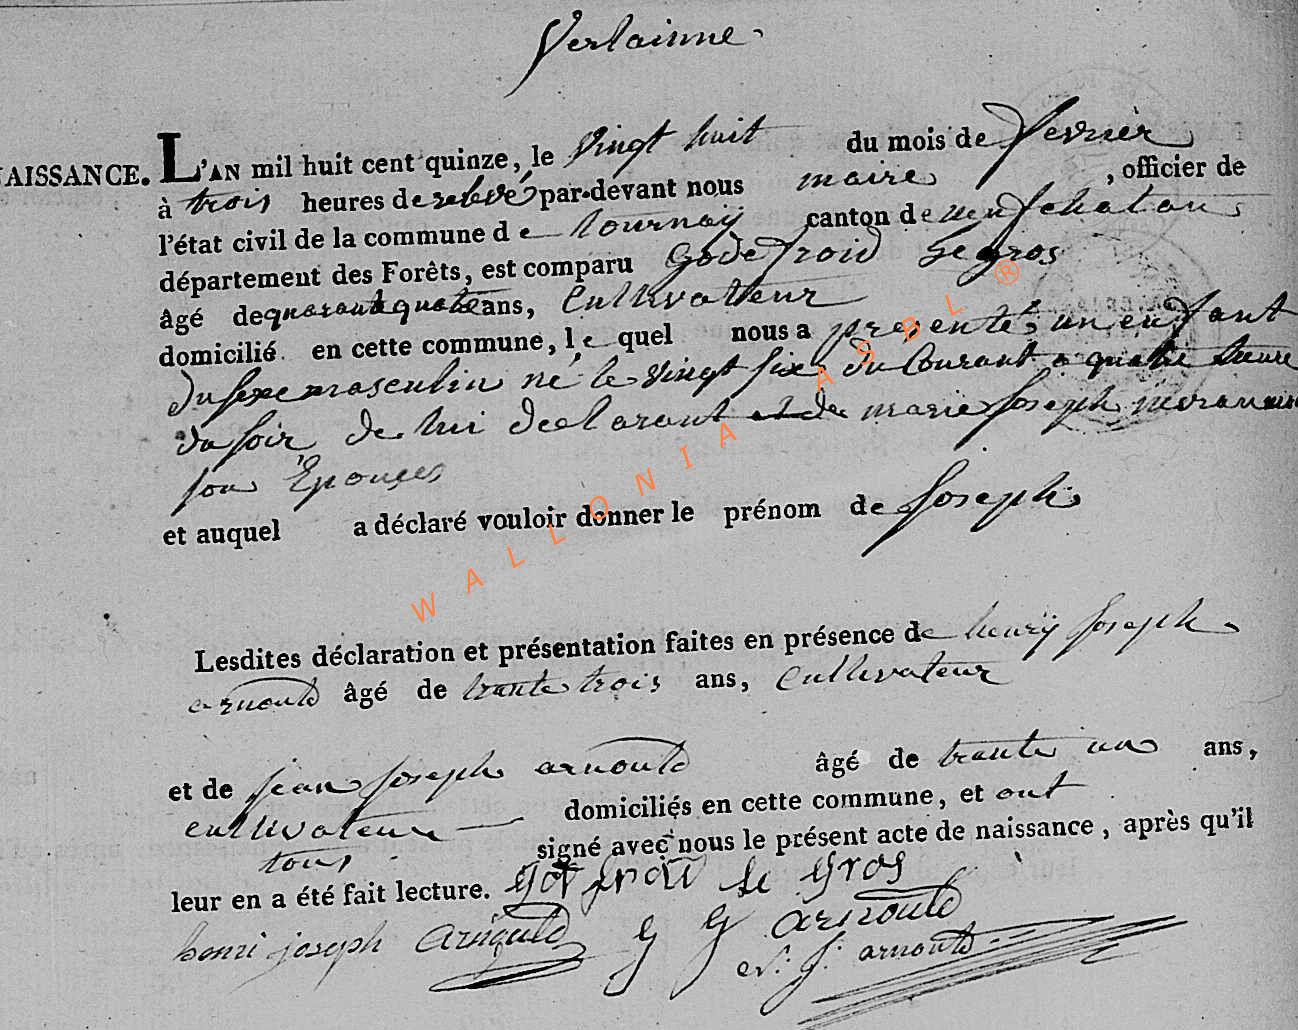 Verlainne.
NAISSANCE. L'AN mil huit cent quinze, le vingt huit du mois de fevrier
à trois heures de relevé par-devant nous maire, officier de
l'état civil de la commune de tournay canton de neufchatau
département des Forêts, est comparu godefroid Legros
âgé de quarante quatre ans, Cultivateur
domicilié en cette commune, le quel nous a presenté un enfant
du sexe masculin né le vingt six du Courant a quatre heure
du soir de lui declarant et de marie joseph
son Epouses
et auquel a déclaré vouloir donner le prénom de Joseph
Lesdites déclaration et présentation faites en présence de henry Joseph
arnould âgé de trante trois ans, Cultivateur
et de jean joseph arnould âgé de trante un ans,
cultivateur domiciliés en cette commune, et ont
tous signé avec nous le présent acte de naissance, après qu'il
leur en a été fait lecture. godfroid le gros
henri joseph Arnould G G arnould
N. J. arnould
WALLONIA ASBL ®